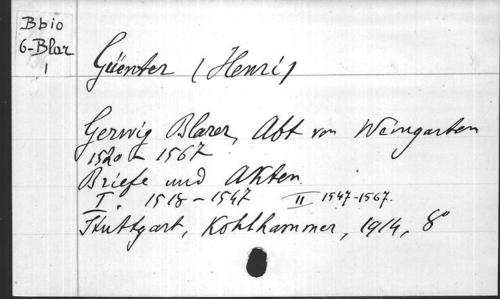 Bbio
6-Blar
1
Güenter (Henri)
Gerwig Blarer, Abt von Weingarten
1520 - 1567
Briefe und Akten.
I. 1518-1547 II 1547-1567.
Stuttgart, Kohlhammer, 1914, 8°